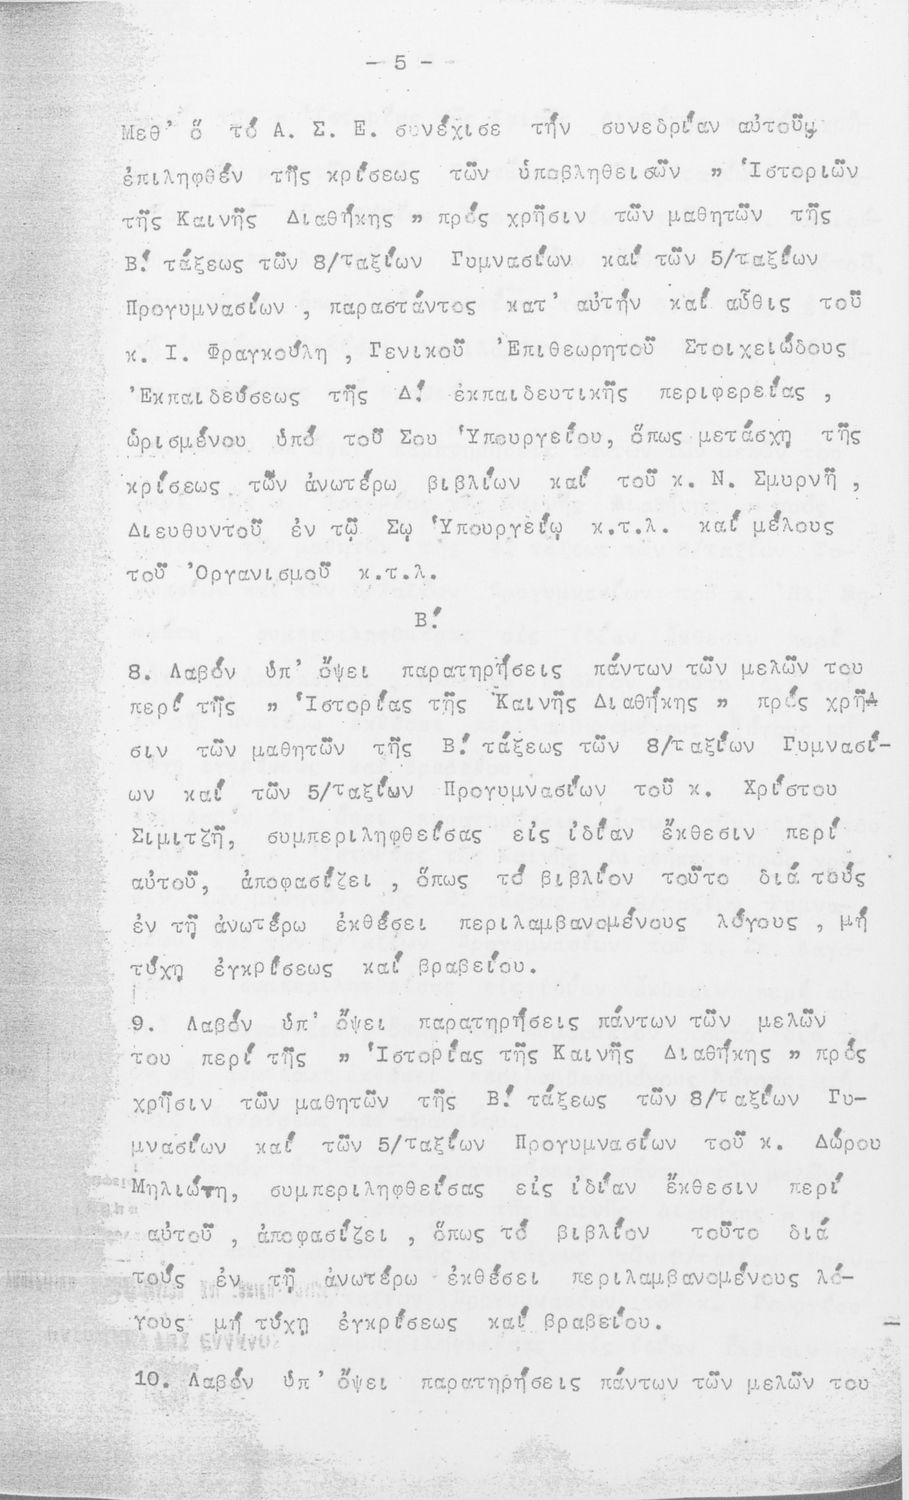 - 5 -
Μεθ' ὅ τό Α. Σ. Ε. συνέχισε τήν συνεδρίαν αὐτοῦ,
ἐπιληφθέν τῆς κρίσεως τῶν ὑποβληθεισῶν " Ἱστοριῶν
τῆς Καινῆς Διαθήκης " πρός χρῆσιν τῶν μαθητῶν τῆς
Β! τάξεως τῶν 8/ταξίων Γυμνασίων καί τῶν 5/ταξίων
Προγυμνασίων , παραστάντος κατ' αὐτήν καί αὖθις τοῦ
κ. Ι. Φραγκούλη , Γενικοῦ Ἐπιθεωρητοῦ Στοιχειώδους
Ἐκπαιδεύσεως τῆς Δ! ἐκπαιδευτικῆς περιφερείας ,
ὡρισμένου ὑπό τοῦ Σου Ὑπουργείου, ὅπως μετάσχῃ τῆς
κρίσεως τῶν ἀνωτέρω βιβλίων καί τοῦ κ. Ν. Σμυρνῆ ,
Διευθυντοῦ ἐν τῷ Σῳ Ὑπουργείῳ κ.τ.λ. καί μέλους
τοῦ Ὀργανισμοῦ κ.τ.λ.
Β!
8. Λαβόν ὑπ' ὄψει παρατηρήσεις πάντων τῶν μελῶν του
περί τῆς " Ἱστορίας τῆς Καινῆς Διαθήκης " πρός χρῆ-
σιν τῶν μαθητῶν τῆς Β! τάξεως τῶν 8/ταξίων Γυμνασί-
ων καί τῶν 5/ταξίων Προγυμνασίων τοῦ κ. Χρίστου
Σιμιτζῆ, συμπεριληφθείσας εἰς ἰδίαν ἔκθεσιν περί
αὐτοῦ, ἀποφασίζει , ὅπως τό βιβλίον τοῦτο διά τούς
ἐν τῇ ἀνωτέρω ἐκθέσει περιλαμβανομένους λόγους , μή
τύχῃ ἐγκρίσεως καί βραβείου.
9. Λαβόν ὑπ' ὄψει παρατηρήσεις πάντων τῶν μελῶν
του περί τῆς " Ἱστορίας τῆς Καινῆς Διαθήκης " πρός
χρῆσιν τῶν μαθητῶν τῆς Β! τάξεως τῶν 8/ταξίων Γυ-
μνασίων καί τῶν 5/ταξίων Προγυμνασίων τοῦ κ. Δώρου
Μηλιώτη, συμπεριληφθείσας εἰς ἰδίαν ἔκθεσιν περί
αὐτοῦ , ἀποφασίζει , ὅπως τό βιβλίον τοῦτο διά
τούς ἐν τῇ ἀνωτέρω ἐκθέσει περιλαμβανομένους λό-
γους μή τύχῃ ἐγκρίσεως καί βραβείου.
10. Λαβόν ὑπ' ὄψει παρατηρήσεις πάντων τῶν μελῶν του